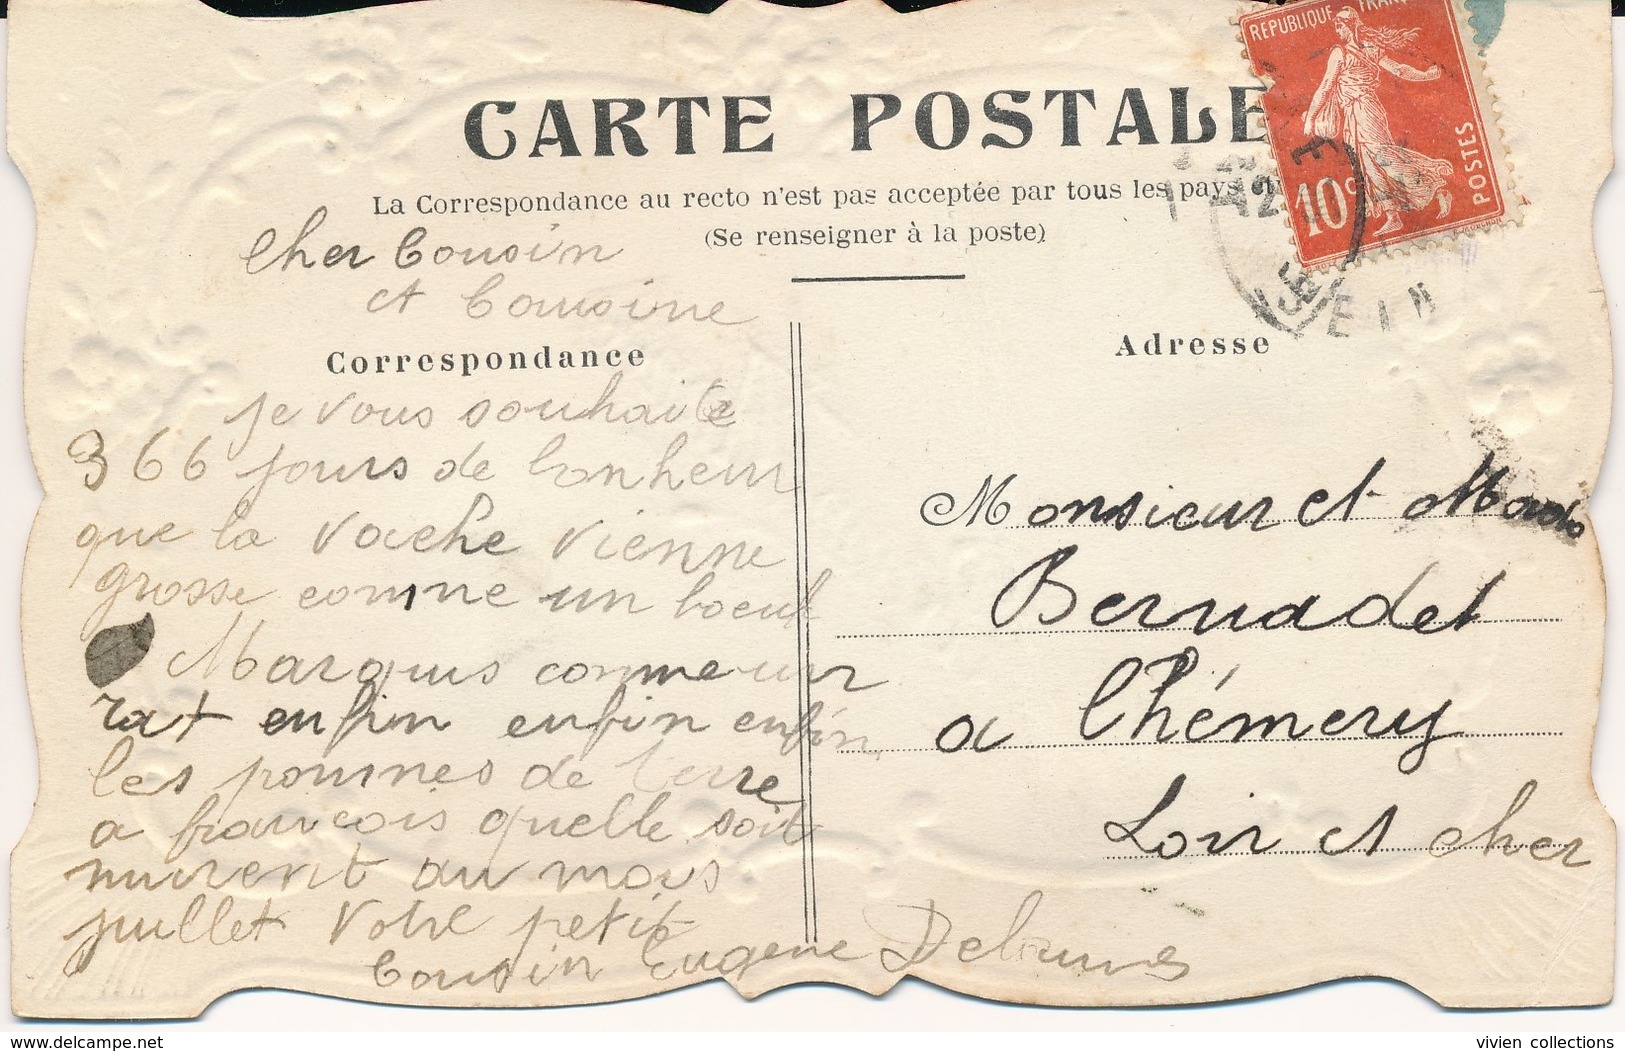 CARTE POSTALE
La Correspondance au recto n'est pas acceptée par tous les pays
(Se renseigner à la poste)
REPUBLIQUE FRANÇ
POSTES
10c
Cher Cousin
et Cousine
Correspondance
je vous souhaite
366 jours de bonheur
que la vache vienne
grosse comme un boeuf
Marquis comme un
rat enfin enfin enfin
les pommes de terre
a francois quelle soit
murent au mois
juillet Votre petit
Cousin Eugene
Adresse
Monsieur et
Bernadet
a Chémery
Loir et cher
www.delcampe.net
vivien collections